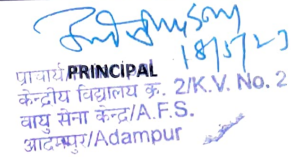 18/5/23
प्राचार्य/PRINCIPAL
केन्द्रीय विद्यालय क्र. 2/K.V. No. 2
वायु सेना केन्द्र/A.F.S.
आदमपुर/Adampur